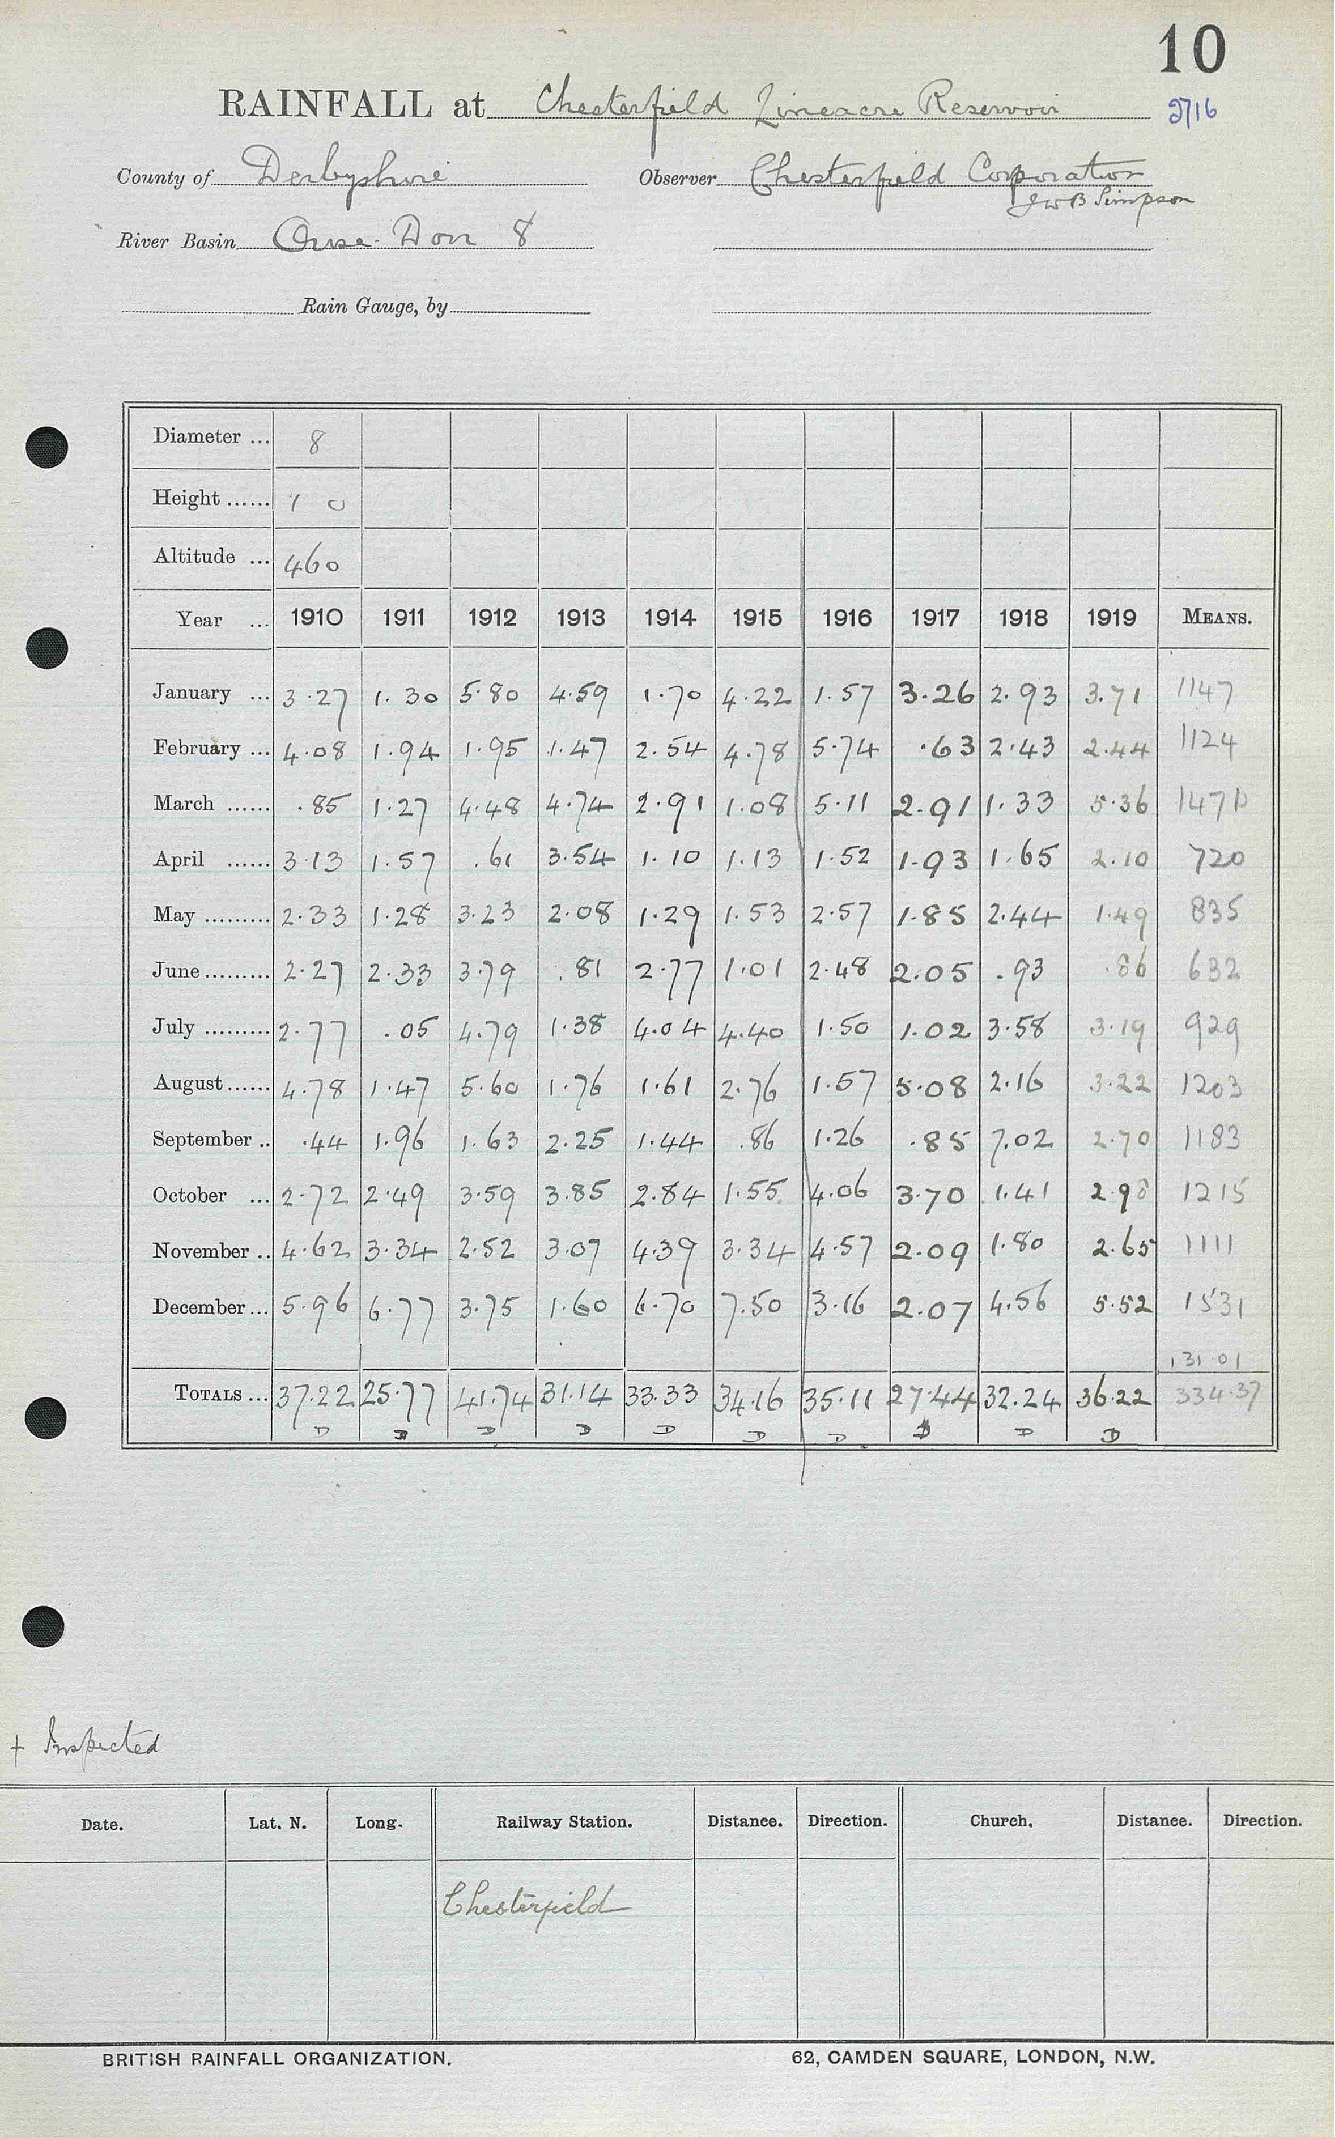 10
RAINFALL at Chesterfield Lineacre Reservoir 2716
County of Derbyshire Observer Chesterfield Corporation
J W B Simpson
River Basin Ouse. Don 8
Rain Gauge, by
Diameter ... 8
Height ...... 1 0
Altitude ... 460
Year ... 1910 1911 1912 1913 1914 1915 1916 1917 1918 1919 MEANS.
January ... 3.27 1.30 5.80 4.59 1.70 4.22 1.57 3.26 2.93 3.71 1147
February ... 4.08 1.94 1.95 1.47 2.54 4.78 5.74 .63 2.43 2.44 1124
March ...... .85 1.27 4.48 4.74 2.91 1.08 5.11 2.91 1.33 5.36 1471
April ...... 3.13 1.57 .61 3.54 1.10 1.13 1.52 1.93 1.65 2.10 720
May ......... 2.33 1.28 3.23 2.08 1.29 1.53 2.57 1.85 2.44 1.49 835
June ......... 2.27 2.33 3.79 .81 2.77 1.01 2.48 2.05 .93 .86 632
July ......... 2.77 .05 4.79 1.38 4.04 4.40 1.50 1.02 3.58 3.19 929
August ...... 4.78 1.47 5.60 1.76 1.61 2.76 1.57 5.08 2.16 3.22 1203
September .. .44 1.96 1.63 2.25 1.44 .86 1.26 .85 7.02 2.70 1183
October ... 2.72 2.49 3.59 3.85 2.84 1.55 4.06 3.70 1.41 2.98 1215
November .. 4.62 3.34 2.52 3.07 4.39 3.34 4.57 2.09 1.80 2.65 1111
December ... 5.96 6.77 3.75 1.60 6.70 7.50 3.16 2.07 4.56 5.52 1531
131.01
TOTALS ... 37.22 25.77 41.74 31.14 33.33 34.16 35.11 27.44 32.24 36.22 334.37
D D D D D D D D D D
+ Inspected
Date. Lat. N. Long. Railway Station. Distance. Direction. Church. Distance. Direction.
Chesterfield
BRITISH RAINFALL ORGANIZATION. 62, CAMDEN SQUARE, LONDON, N.W.